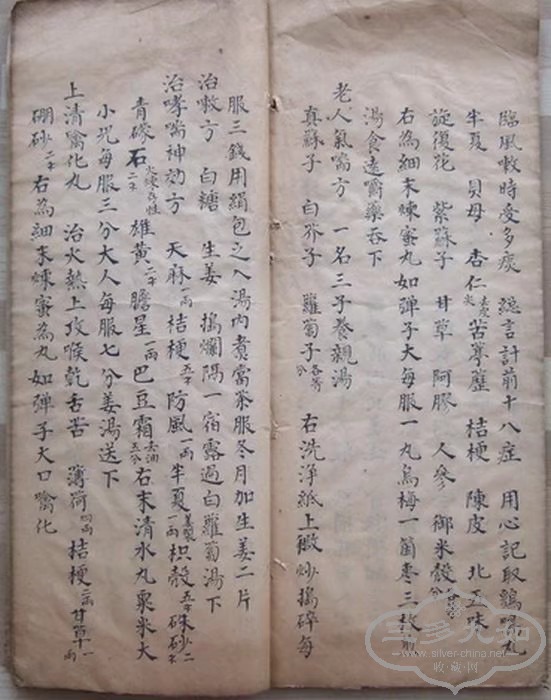 臨風嗽時受多痰 總言計前十八症 用心記取鷄鳴丸
半夏 貝母 杏仁去皮尖 苦葶藶 桔梗 陳皮 北五味
旋復花 紫蘇子 甘草 阿膠 人參 御米殼
右為細末煉蜜丸如弹子大每服一丸烏梅一箇枣三枚
湯食遠嚼藥吞下
老人氣喘方 一名三子養親湯
真蘇子 白芥子 蘿蔔子各等分 右洗淨紙上微炒搗碎每
服三錢用絹包之入湯內煮當茶服冬月加生姜二片
治嗽方 白糖 生姜 搗爛隔一宿露過白蘿蔔湯下
治哮喘神効方 天麻一両 桔梗五不 防風一両 半夏姜製一両 枳殼五不 硃砂二不
青礞石二不火煉存性 雄黃二不 膽星一両 巴豆霜去油五分 右末清水丸粟米大
小児每服三分大人每服七分姜湯送下
上清噙化丸 治火熱上攻喉乾舌苦 薄荷四両 桔梗二両 甘草一両
硼砂二不 右為細末煉蜜為丸如弹子大口噙化
雲多九如
www.silver-china.net
收·藏·网